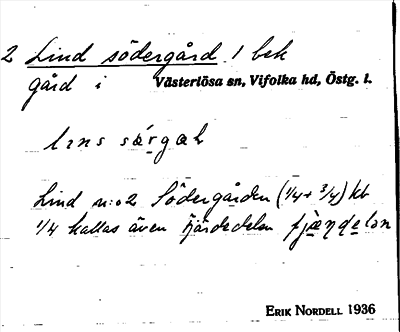 2 Lind södergård 1 bek
gård i Västerlösa sn, Vifolka hd, Östg. l.
Lind n:o 2 Södergården (1/4 + 3/4) kb
1/4 kallas även fjärdedelen
ERIK NORDELL 1936